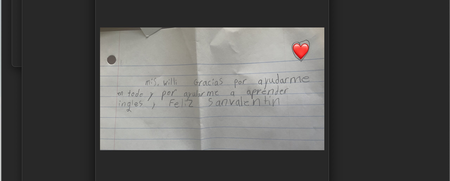 ms. Wilb Gracias por ayudarme
en todo y por ayudarme a aprender
inglas y Feliz Sanvalentin